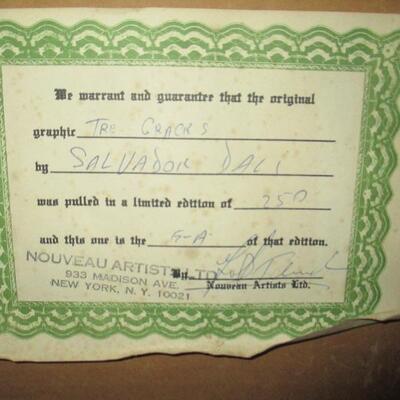 We warrant and guarantee that the original
graphic TRE CRACKS
by SALVADOR DALI
was pulled in a limited edition of 250
and this one is the of that edition.
NOUVEAU ARTISTS LTD.
933 MADISON AVE.
NEW YORK, N.Y. 10021
By
Nouveau Artists Ltd.